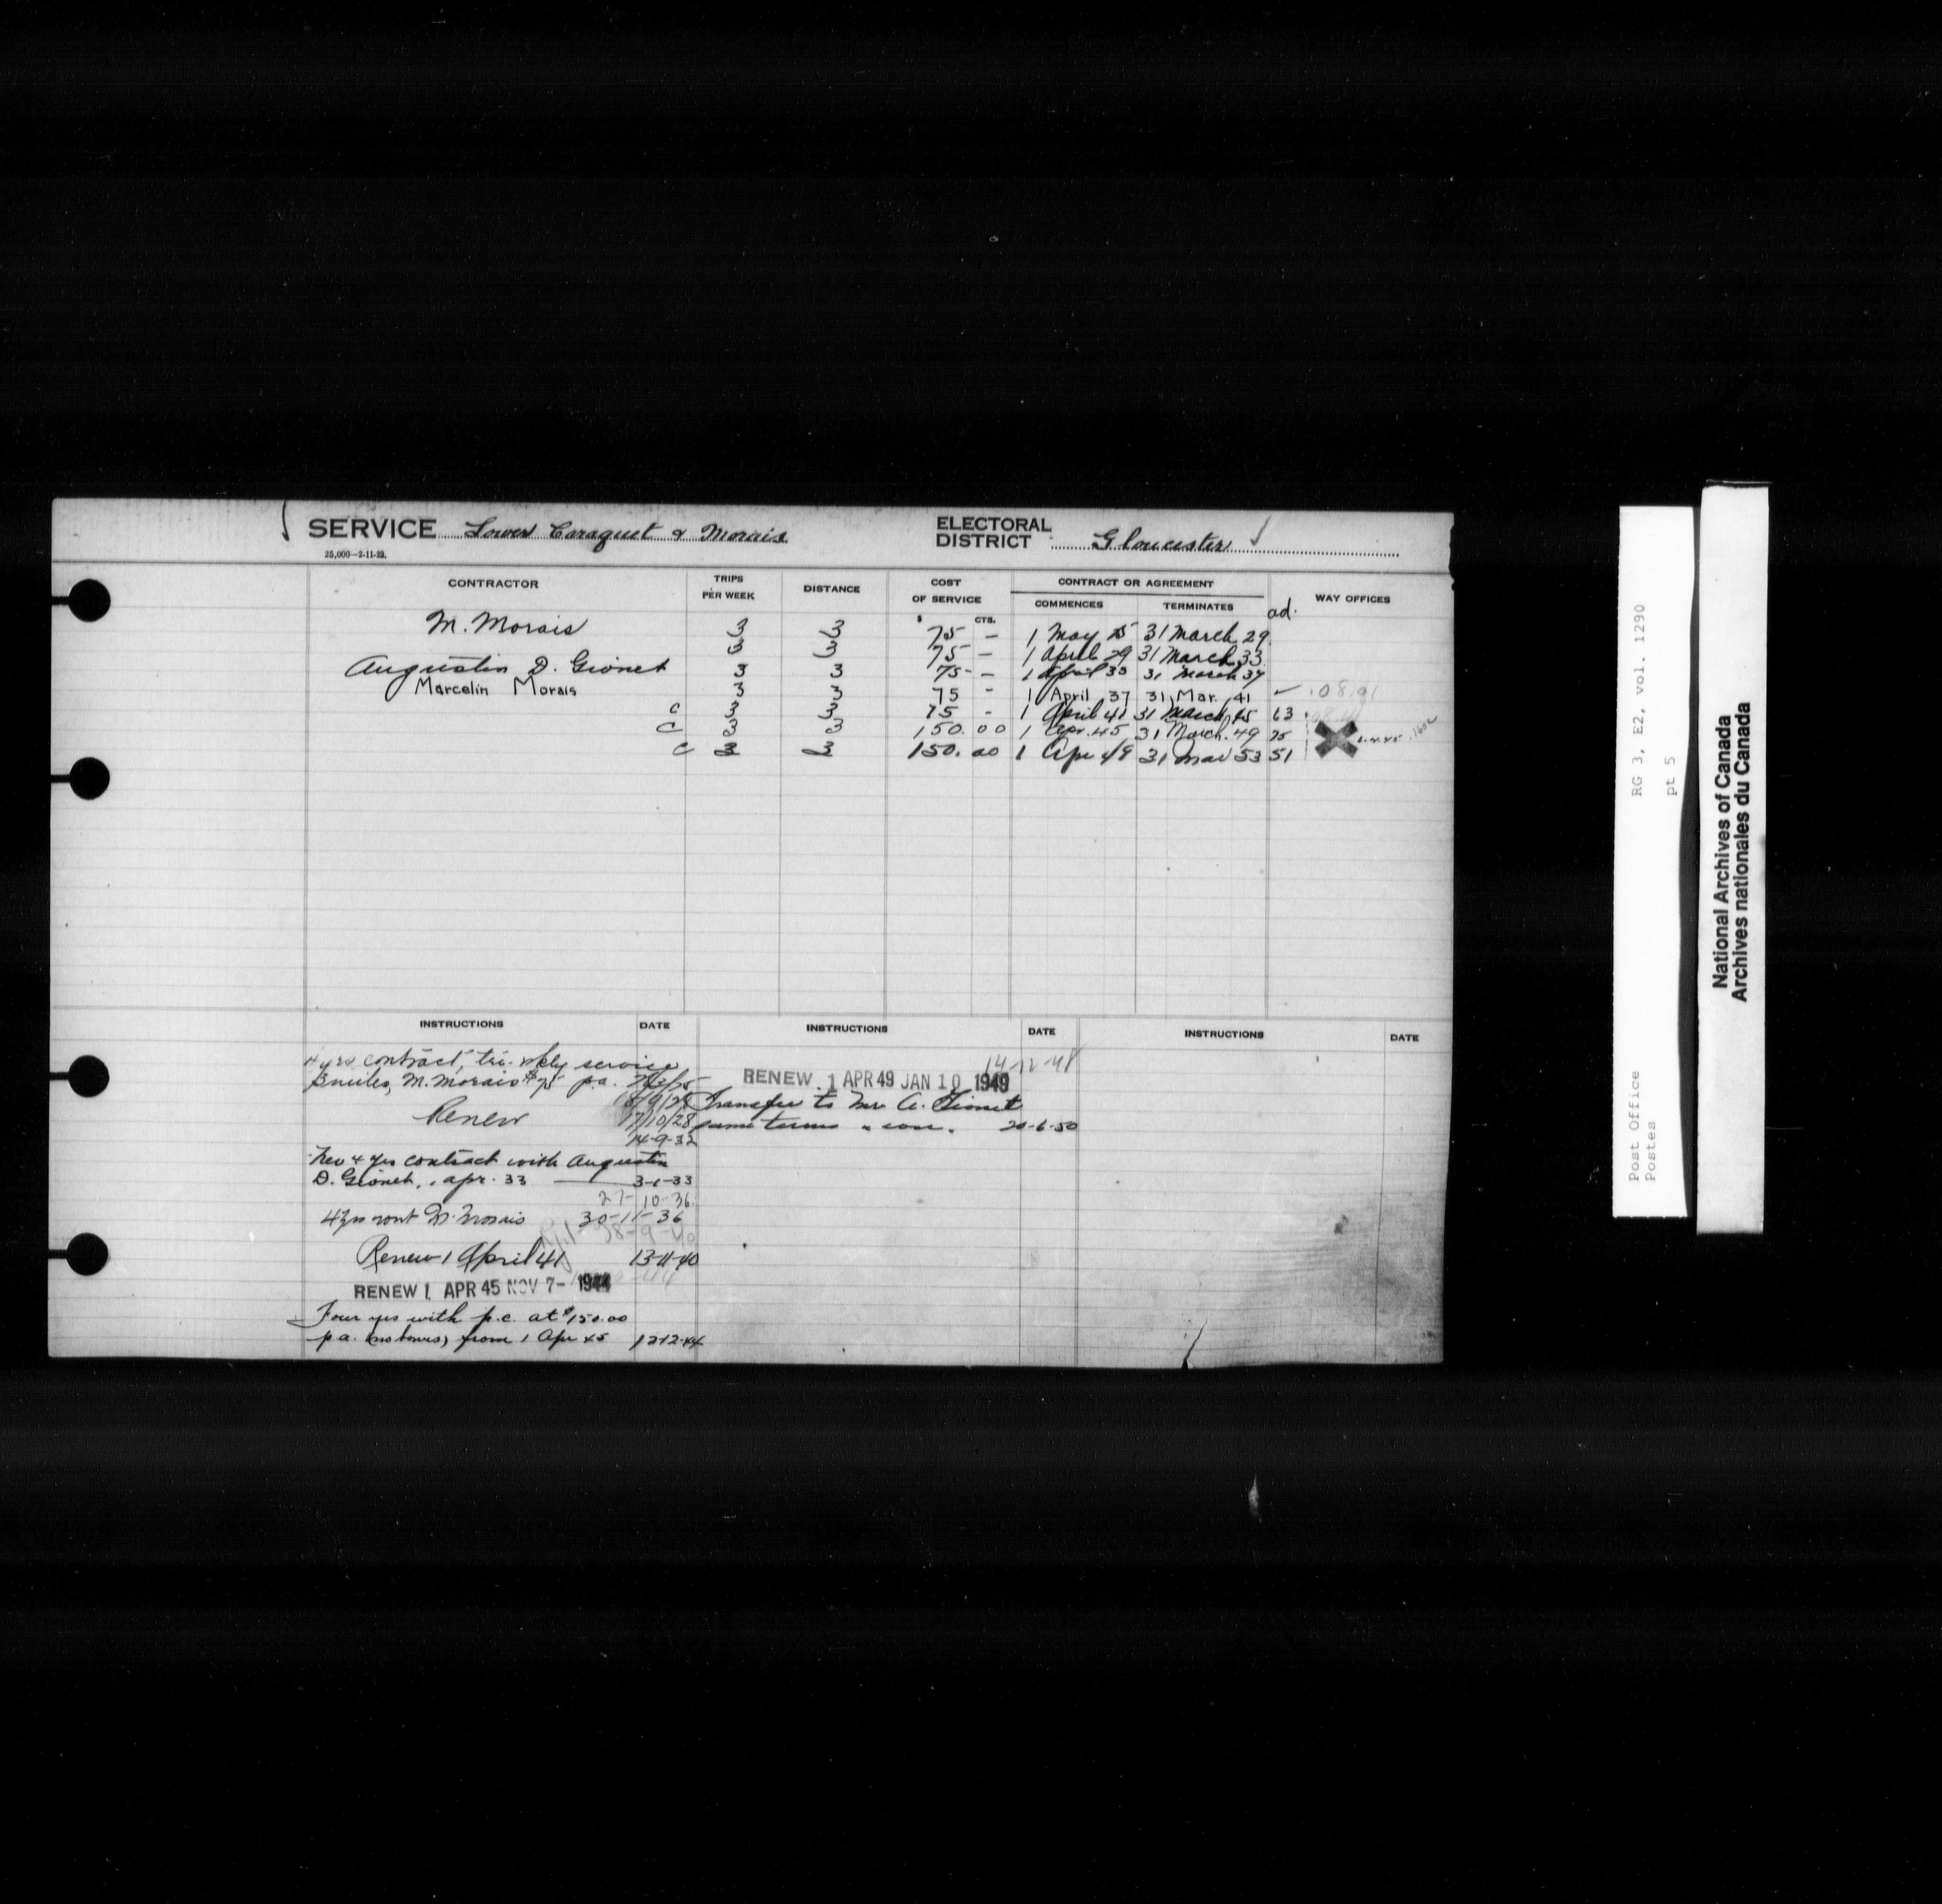 SERVICE Lower Caraquet & Morais ELECTORAL DISTRICT Gloucester
25,000—2-11-22.
CONTRACTOR TRIPS PER WEEK DISTANCE COST OF SERVICE CONTRACT OR AGREEMENT WAY OFFICES
$ CTS. COMMENCES TERMINATES ad.
M. Morais 3 3 75 - 1 May 25 31 March 29
3 3 75 - 1 April 29 31 March 33
Augustin D. Gionet 3 3 75 - 1 April 33 31 March 37
Marcelin Morais 3 3 75 - 1 April 37 31 Mar. 41
c 3 3 75 - 1 April 41 31 March 45 63
c 3 3 150.00 1 Apr. 45 31 March. 49 75
c 3 3 150.00 1 Apr 49 31 Mar 53 51
INSTRUCTIONS DATE INSTRUCTIONS DATE INSTRUCTIONS DATE
4 yrs contract, tri-wkly service
3 miles, M. Morais $75 p.a.
Renew 17/10/28
14-9-32
New 4 yrs contract with Augustin
D. Gionet, 1 apr. 33 3-1-33
27-10-36
4 yrs cont M. Morais 30-11-36
28-9-40
Renew 1 April 41 13-11-40
RENEW 1 APR 45 NOV 7- 1944
Four yrs with p.c. at $150.00
p.a. (no bonus) from 1 Apr 45 1-12-44
14-12-48
RENEW 1 APR 49 JAN 10 1949
Transfer to Mr A. Gionet
same terms & con. 20-6-50
Post Office RG 3, E2, vol. 1290
Postes pt 5
National Archives of Canada
Archives nationales du Canada